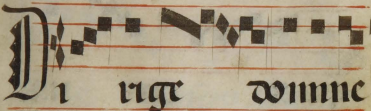 Di rige domine